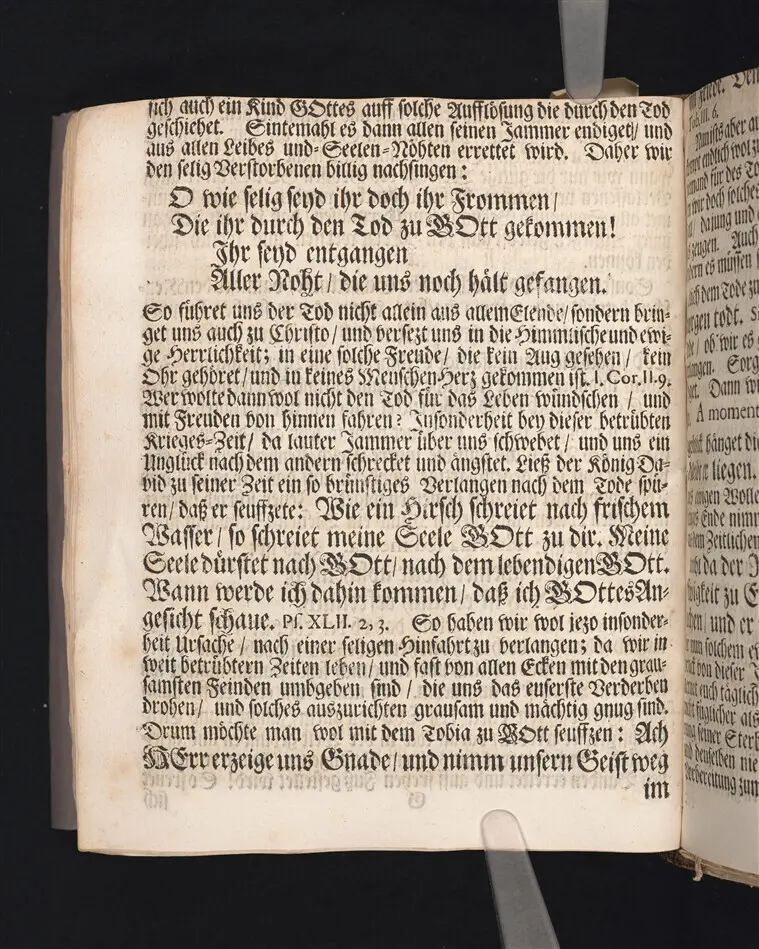 sich auch ein Kind GOttes auff solche Aufflösung die durch den Tod
geschiehet. Sintemahl es dann allen seinen Jammer endiget/ und
aus allen Leibes und-Seelen-Nöhten errettet wird. Daher wir
den selig Verstorbenen billig nachsingen:
O wie selig seyd ihr doch ihr Frommen/
Die ihr durch den Tod zu GOtt gekommen!
Ihr seyd entgangen
Aller Noht/ die uns noch hält gefangen.
So führet uns der Tod nicht allein aus allem Elende/ sondern brin-
get uns auch zu Christo/ und versezt uns in die Himmlische und ewi-
ge Herrlichkeit; in eine solche Freude/ die kein Aug gesehen/ kein
Ohr gehöret/ und in keines Menschen Herz gekommen ist. I. Cor. II. 9.
Wer wolte dann wol nicht den Tod für das Leben wündschen/ und
mit Freuden von hinnen fahren? Insonderheit bey dieser betrübten
Krieges-Zeit/ da lauter Jammer über uns schwebet/ und uns ein
Unglück nach dem andern schrecket und ängstet. Ließ der König Da-
vid zu seiner Zeit ein so brünstiges Verlangen nach dem Tode spü-
ren/ daß er seuffzete: Wie ein Hirsch schreiet nach frischem
Wasser/ so schreiet meine Seele GOtt zu dir. Meine
Seele dürstet nach GOtt/ nach dem lebendigen GOtt.
Wann werde ich dahin kommen/ daß ich GOttes An-
gesicht schaue. Ps. XLII. 2, 3. So haben wir wol jezo insonder-
heit Ursache/ nach einer seligen Hinfahrt zu verlangen; da wir in
weit betrübtern Zeiten leben/ und fast von allen Ecken mit den grau-
samsten Feinden umbgeben sind/ die uns das euserste Verderben
drohen/ und solches auszurichten grausam und mächtig gnug sind.
Drum möchte man wol mit dem Tobia zu GOtt seuffzen: Ach
HErr erzeige uns Gnade/ und nimm unsern Geist weg
im